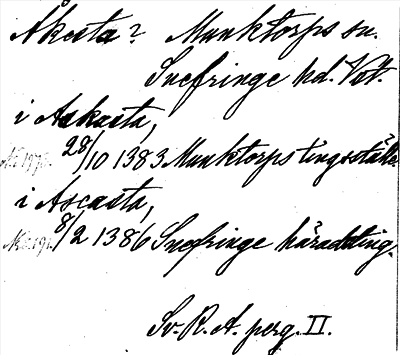 Åkesta? Munktorps sn.
Snefringe hd. Vstm.
i Askasta,
28/10 1383 Munktorps tingsställe.
i Ascasta,
8/2 1386 Snefringe häradsting.
Sv. R. A. perg. II.